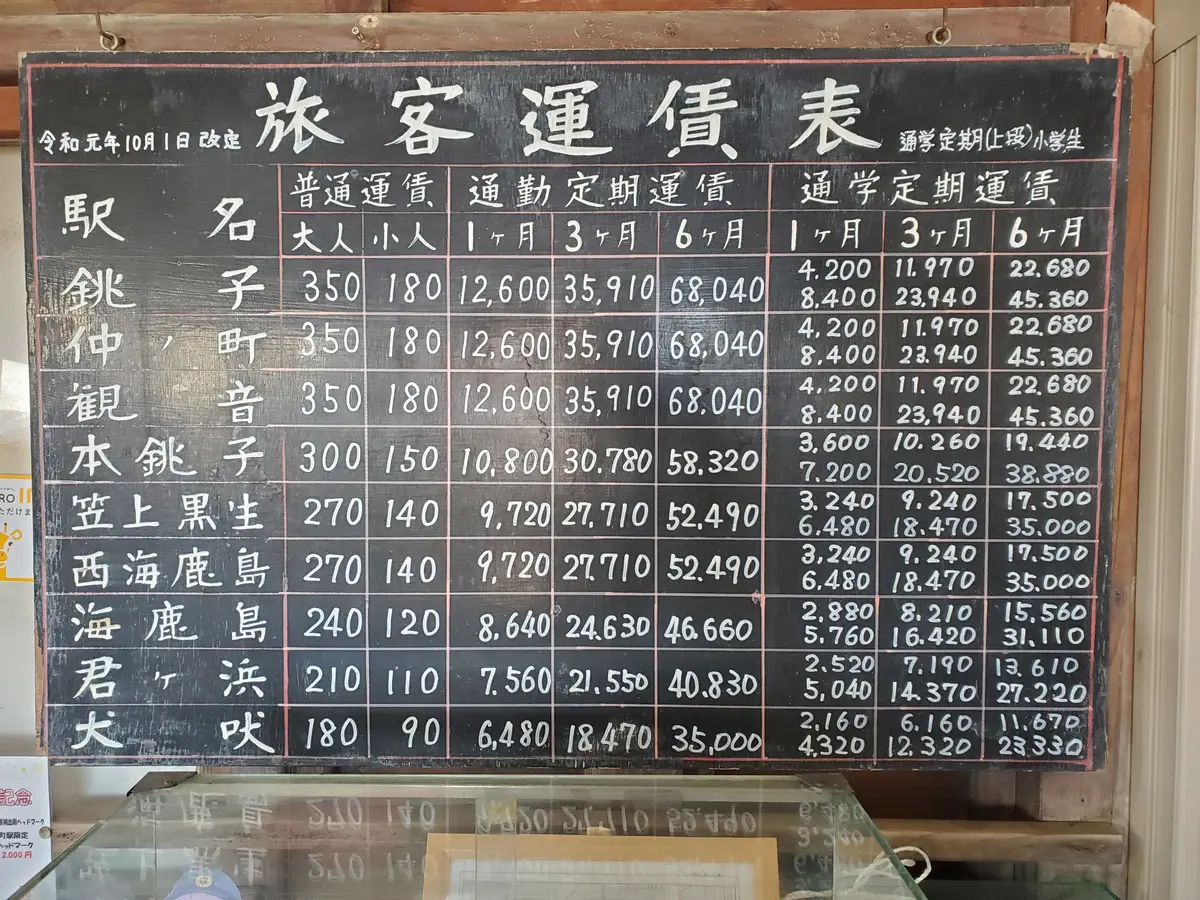 旅客運賃表
令和元年10月1日改定
通学定期(上段)小学生
駅名 普通運賃 通勤定期運賃 通学定期運賃
大人 小人 1ヶ月 3ヶ月 6ヶ月 1ヶ月 3ヶ月 6ヶ月
4.200 11.970 22.680
銚子 350 180 12,600 35,910 68,040
8,400 23,940 45.360
4,200 11.970 22.680
仲ノ町 350 180 12,600 35,910 68,040
8.400 23.940 45.360
4.200 11.970 22.680
観音 350 180 12,600 35,910 68.040
8.400 23,940 45.360
3,600 10.260 19.440
本銚子 300 150 10,800 30.780 58,320
7.200 20,520 38.880
3.240 9.240 17.500
笠上黒生 270 140 9,720 27,710 52.490
6,480 18.470 35.000
3,240 9.240 17.500
西海鹿島 270 140 9,720 27.710 52.490
6.480 18.470 35.000
2,880 8.210 15,560
海鹿島 240 120 8.640 24.630 46.660
5.760 16.420 31.110
2.520 7.190 13.610
君ヶ浜 210 110 7.560 21.550 40.830
5,040 14.370 27.220
2,160 6.160 11.670
犬吠 180 90 6,480 18.470 35,000
4,320 12.320 23.330
記念
町駅限定
ヘッドマーク
2,000円